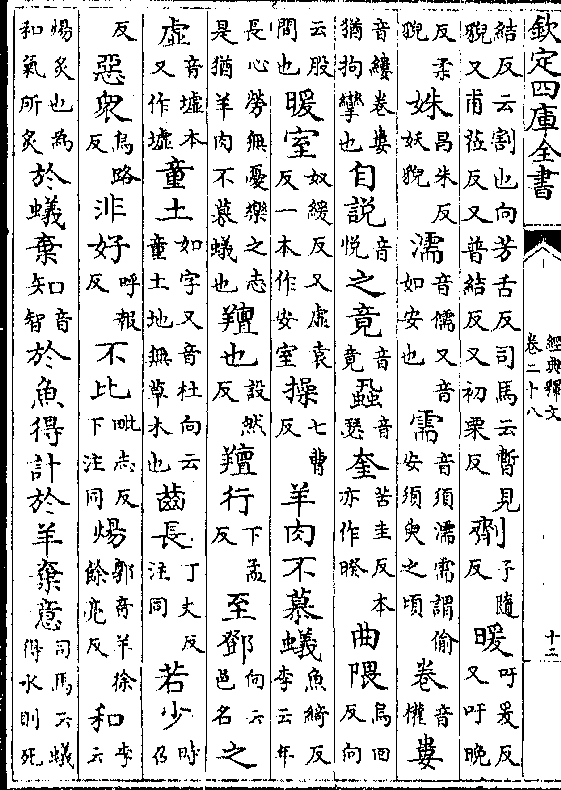 欽定四庫全書 經典釋文 卷二十八 十二
結反云割也向芳舌反司馬云暫見覕又甫莅反又普結反又初栗反 劑 子隨反 暖 吁爰反又吁晚
反柔覕 姝 昌朱反妖覕 濡 音儒又音如安也 需 音須濡需謂偷安須臾之頃 卷 音權 婁
音縷卷婁猶拘攣也 自說 音悅 之竟 音竟 蝨 音瑟 奎 苦圭反本亦作睽 曲隈 烏回反向
云股間也 暖室 奴緩反又虛袁反一本作安室 操 七曹反 羊肉不慕蟻 魚綺反李云年
長心勞無憂樂之志是猶羊肉不慕蟻也 羶也 設然反 羶行 下孟反 至鄧 向云邑名 之
虛 音墟本又作墟 童土 如字又音杜向云童土地無草木也 齒長 丁丈反注同 若少 時仍
反 惡衆 烏路反 非好 呼報反 不比 毗志反下注同 煬 郭音羊徐餘亮反 和 李云
煬炙也為和氣所炙 於蟻棄知 音智 於魚得計於羊棄意 司馬云蟻得水則死